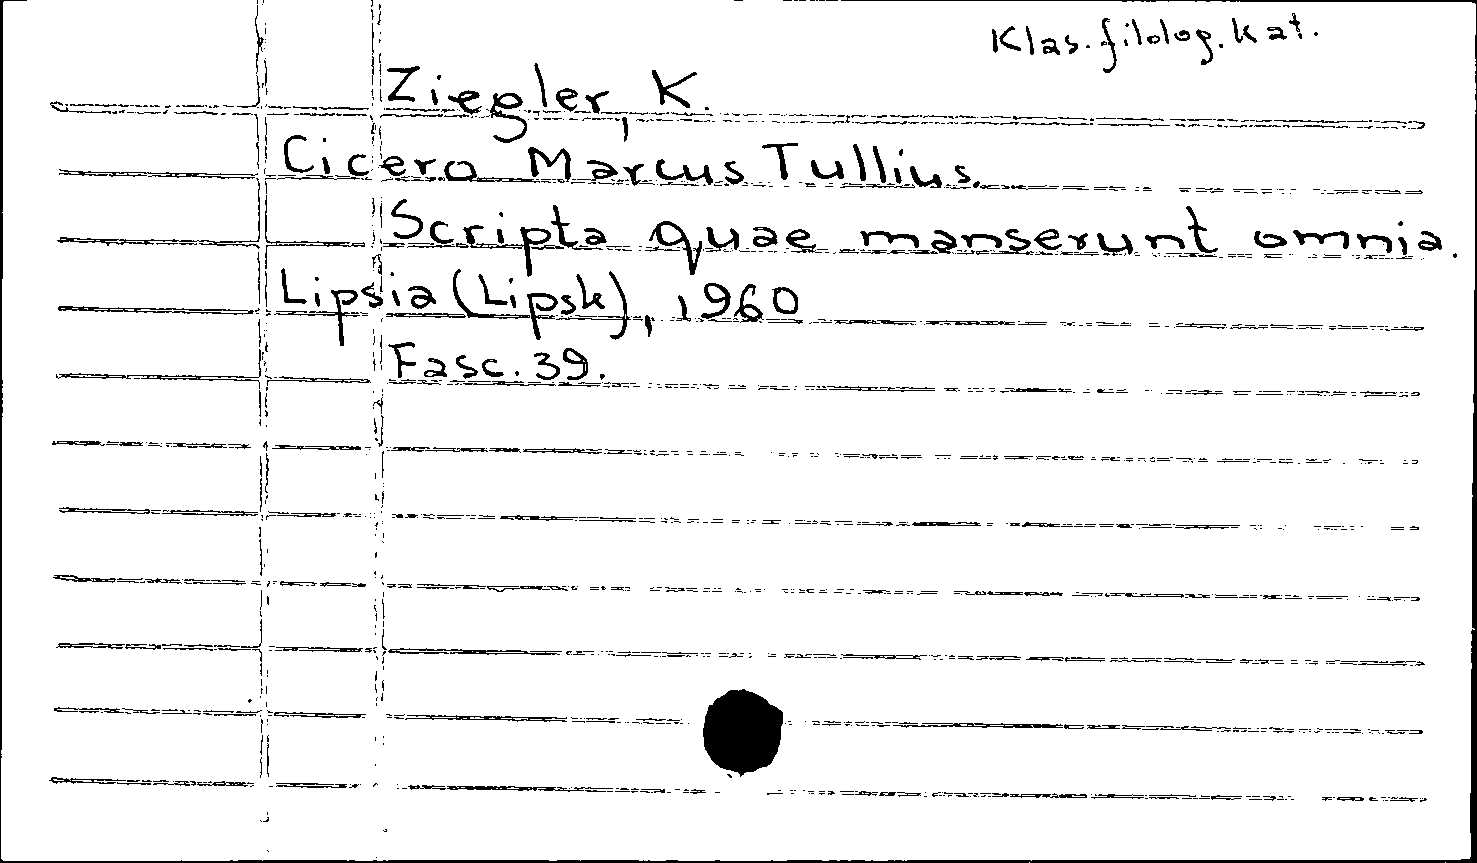 Klas.filolog.kat.
Ziegler, K.
Cicero Marcus Tullius.
Scripta quae manserunt omnia.
Lipsia (Lipsk), 1960
Fasc. 39.